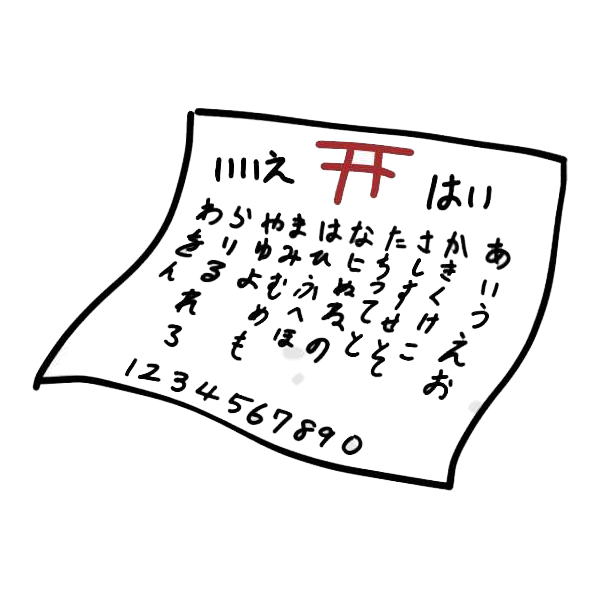 いいえ
はい
あいうえお
かきくけこ
さしすせそ
たちつてと
なにぬねの
はひふへほ
まみむめも
やゆよ
らりるれろ
わをん
1234567890